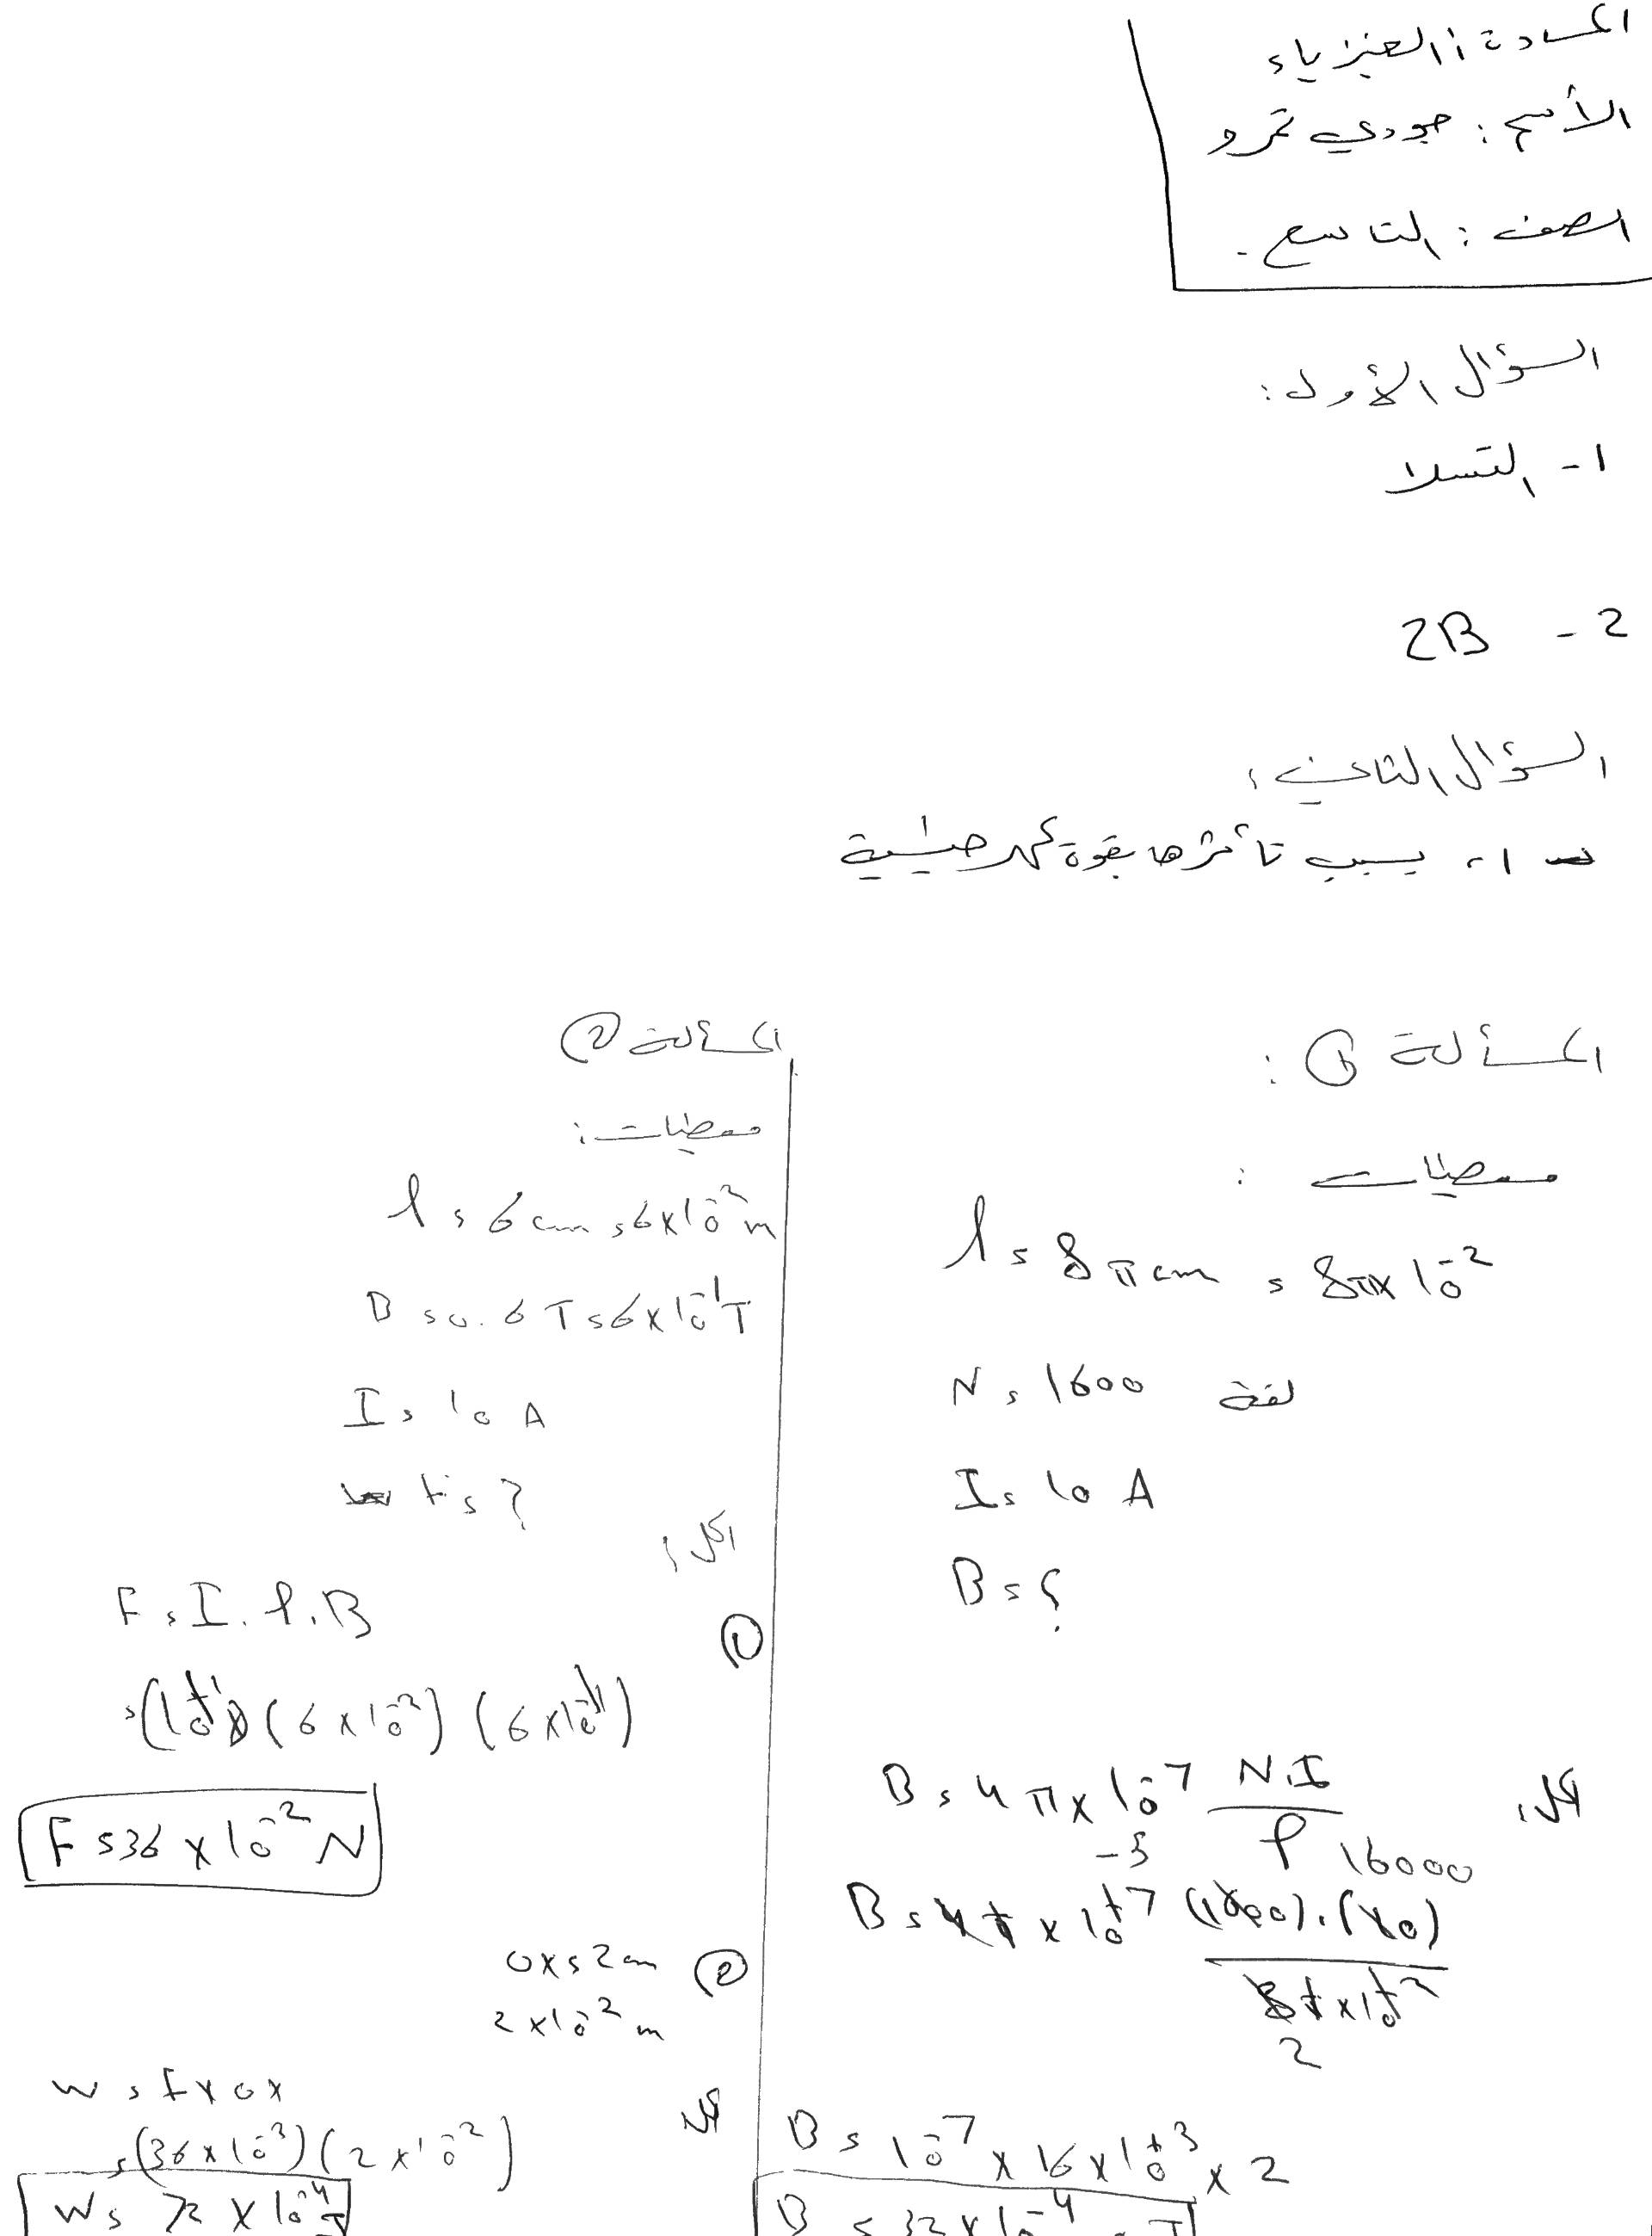 المادة: الفيزياء
الأسم: جودي تمرو
الصف: التاسع.
السؤال الأول:
1- التسلا
2- 2B
السؤال الثاني:
1- بسبب تأثرها بقوة كهرطيسية
المسألة ①:
معطيات:
l = 8πcm = 8π×10⁻²
N = 1600 لفة
I = 10 A
B = ?
الحل:
B = 4π×10⁻⁷ N.I / l
-5 16000
B = 4π × 10⁻⁷ (1600).(10) / 8π×10⁻²
2
B = 10⁻⁷ × 16 × 10⁺³ × 2
B = 32 × 10⁻⁴ T
المسألة ②
معطيات:
l = 6 cm = 6×10⁻² m
B = 0.6 T = 6×10⁻¹ T
I = 10 A
F = ?
الحل:
①
F = I.l.B
= (10⁺¹)(6×10⁻²)(6×10⁻¹)
F = 36 × 10⁻² N
② Δx = 2 cm
2×10⁻² m
الحل
W = F × Δx
= (36×10⁻²)(2×10⁻²)
W = 72 × 10⁻⁴ J